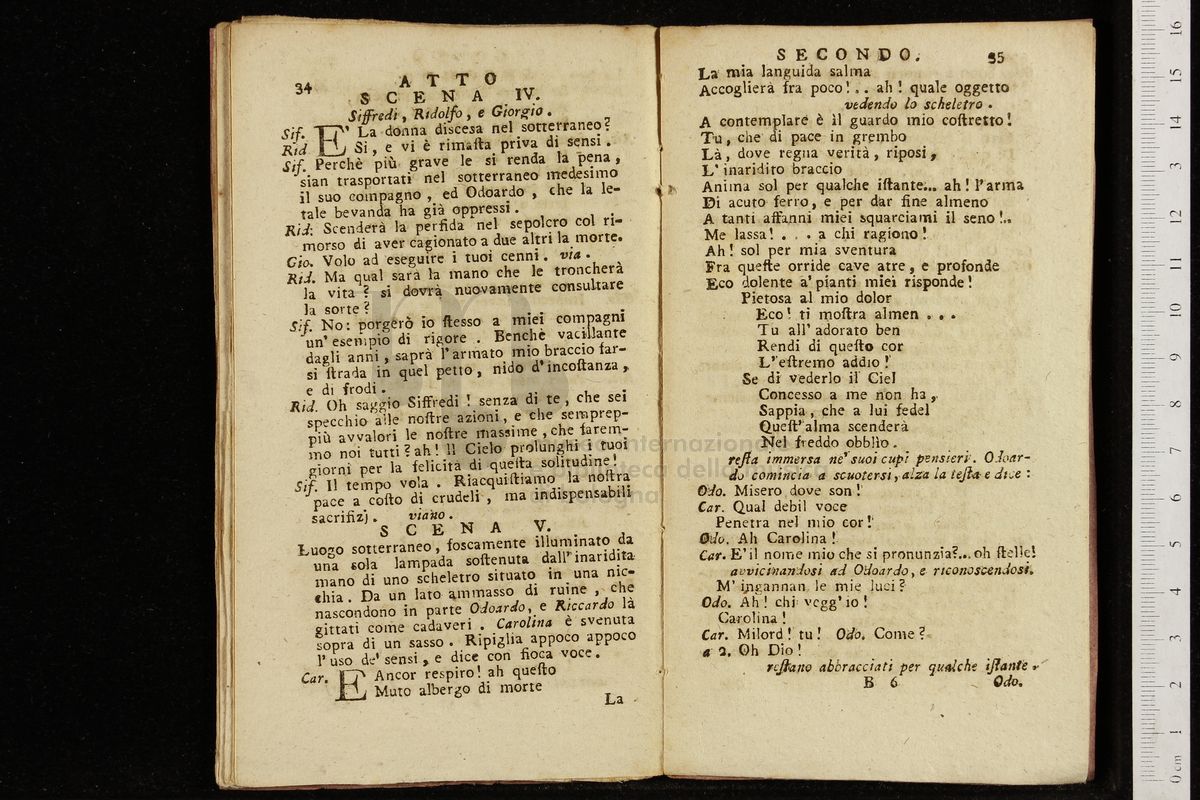 34
ATTO
SCENA IV.
Siffredi, Ridolfo, e Giorgio.
Sif. E' La donna discesa nel sotterraneo?
Rid Sì, e vi è rimaſta priva di sensi.
Sif. Perchè più grave le si renda la pena,
sian trasportati nel sotterraneo medesimo
il suo compagno, ed Odoardo, che la le-
tale bevanda ha già oppressi.
Rid: Scenderà la perfida nel sepolcro col ri-
morso di aver cagionato a due altri la morte.
Gio. Volo ad eseguire i tuoi cenni. via.
Rid. Ma qual sarà la mano che le troncherà
la vita? si dovrà nuovamente consultare
la sorte?
Sif. No: porgerò io ſtesso a miei compagni
un' esempio di rigore. Benchè vacillante
dagli anni, saprà l'armato mio braccio far-
si ſtrada in quel petto, nido d'incoſtanza,
e di frodi.
Rid. Oh saggio Siffredi! senza di te, che sei
specchio alle noſtre azioni, e che semprep-
più avvalori le noſtre massime, che farem-
mo noi tutti? ah! Il Cielo prolunghi i tuoi
giorni per la felicità di queſta solitudine!
Sif. Il tempo vola. Riacquiſtiamo la noſtra
pace a coſto di crudeli, ma indispensabili
sacrifizj. viano.
SCENA V.
Luogo sotterraneo, foscamente illuminato da
una sola lampada soſtenuta dall'inaridita
mano di uno scheletro situato in una nic-
chia. Da un lato ammasso di ruine, che
nascondono in parte Odoardo, e Riccardo là
gittati come cadaveri. Carolina è svenuta
sopra di un sasso. Ripiglia appoco appoco
l'uso de' sensi, e dice con fioca voce.
Car. E Ancor respiro! ah queſto
Muto albergo di morte
La
SECONDO. 35
La mia languida salma
Accoglierà fra poco!.. ah! quale oggetto
vedendo lo scheletro.
A contemplare è il guardo mio coſtretto!
Tu, che di pace in grembo
Là, dove regna verità, riposi,
L'inaridito braccio
Anima sol per qualche iſtante... ah! l'arma
Di acuto ferro, e per dar fine almeno
A tanti affanni miei squarciami il seno!..
Me lassa!... a chi ragiono!
Ah! sol per mia sventura
Fra queſte orride cave atre, e profonde
Eco dolente a' pianti miei risponde!
Pietosa al mio dolor
Eco! ti moſtra almen...
Tu all' adorato ben
Rendi di queſto cor
L'eſtremo addio!
Se di vederlo il Ciel
Concesso a me non ha,
Sappia, che a lui fedel
Queſt'alma scenderà
Nel freddo obblìo.
reſta immersa ne' suoi cupi pensieri. Odoar-
do comincia a scuotersi, alza la teſta e dice:
Odo. Misero dove son!
Car. Qual debil voce
Penetra nel mio cor!
Odo. Ah Carolina!
Car. E'il nome mio che si pronunzia?... oh ſtelle!
avvicinandosi ad Odoardo, e riconoscendosi.
M' ingannan le mie luci?
Odo. Ah! chi vegg'io!
Carolina!
Car. Milord! tu! Odo. Come?
a 2. Oh Dio!
reſtano abbracciati per qualche iſtante.
B 6 Odo.